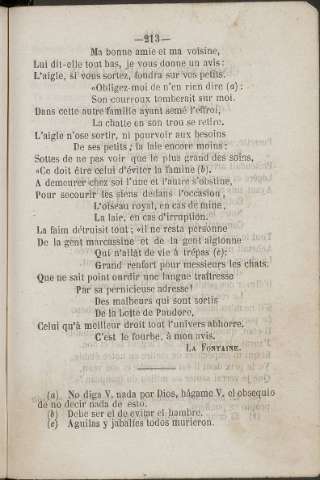 —213—
Ma bonne amie et ma voisine,
Lui dit-elle tout bas, je vous donne un avis:
L'aigle, si vous sortez, fondra sur vos petits.
«Obligez-moi de n'en rien dire (a):
Son courroux tomberait sur moi.
Dans cette autre famille ayant semé l'effroi,
La chatte en son trou se retire.
L'aigle n'ose sortir, ni pourvoir aux besoins
De ses petits; la laie encore moins:
Sottes de ne pas voir que le plus grand des soins,
«Ce doit être celui d'éviter la famine (b).
A demeurer chez soi l'une et l'autre s'obstine,
Pour secourir les siens dedans l'occasion,
L'oiseau royal, en cas de mine,
La laie, en cas d'irruption.
La faim détruisit tout; «il ne resta personne
De la gent marcassine et de la gent aiglonne
Qui n'allât de vie à trépas (c);
Grand renfort pour messieurs les chats.
Que ne sait point ourdir une langue traîtresse
Par sa pernicieuse adresse!
Des malheurs qui sont sortis
De la boîte de Pandore,
Celui qu'à meilleur droit tout l'univers abhorre,
C'est le fourbe, à mon avis.
LA FONTAINE.
(a) No diga V. nada por Dios, hágame V. el obsequio
de no decir nada de esto.
(b) Debe ser el de evitar el hambre.
(c) Águilas y jabalíes todos murieron.